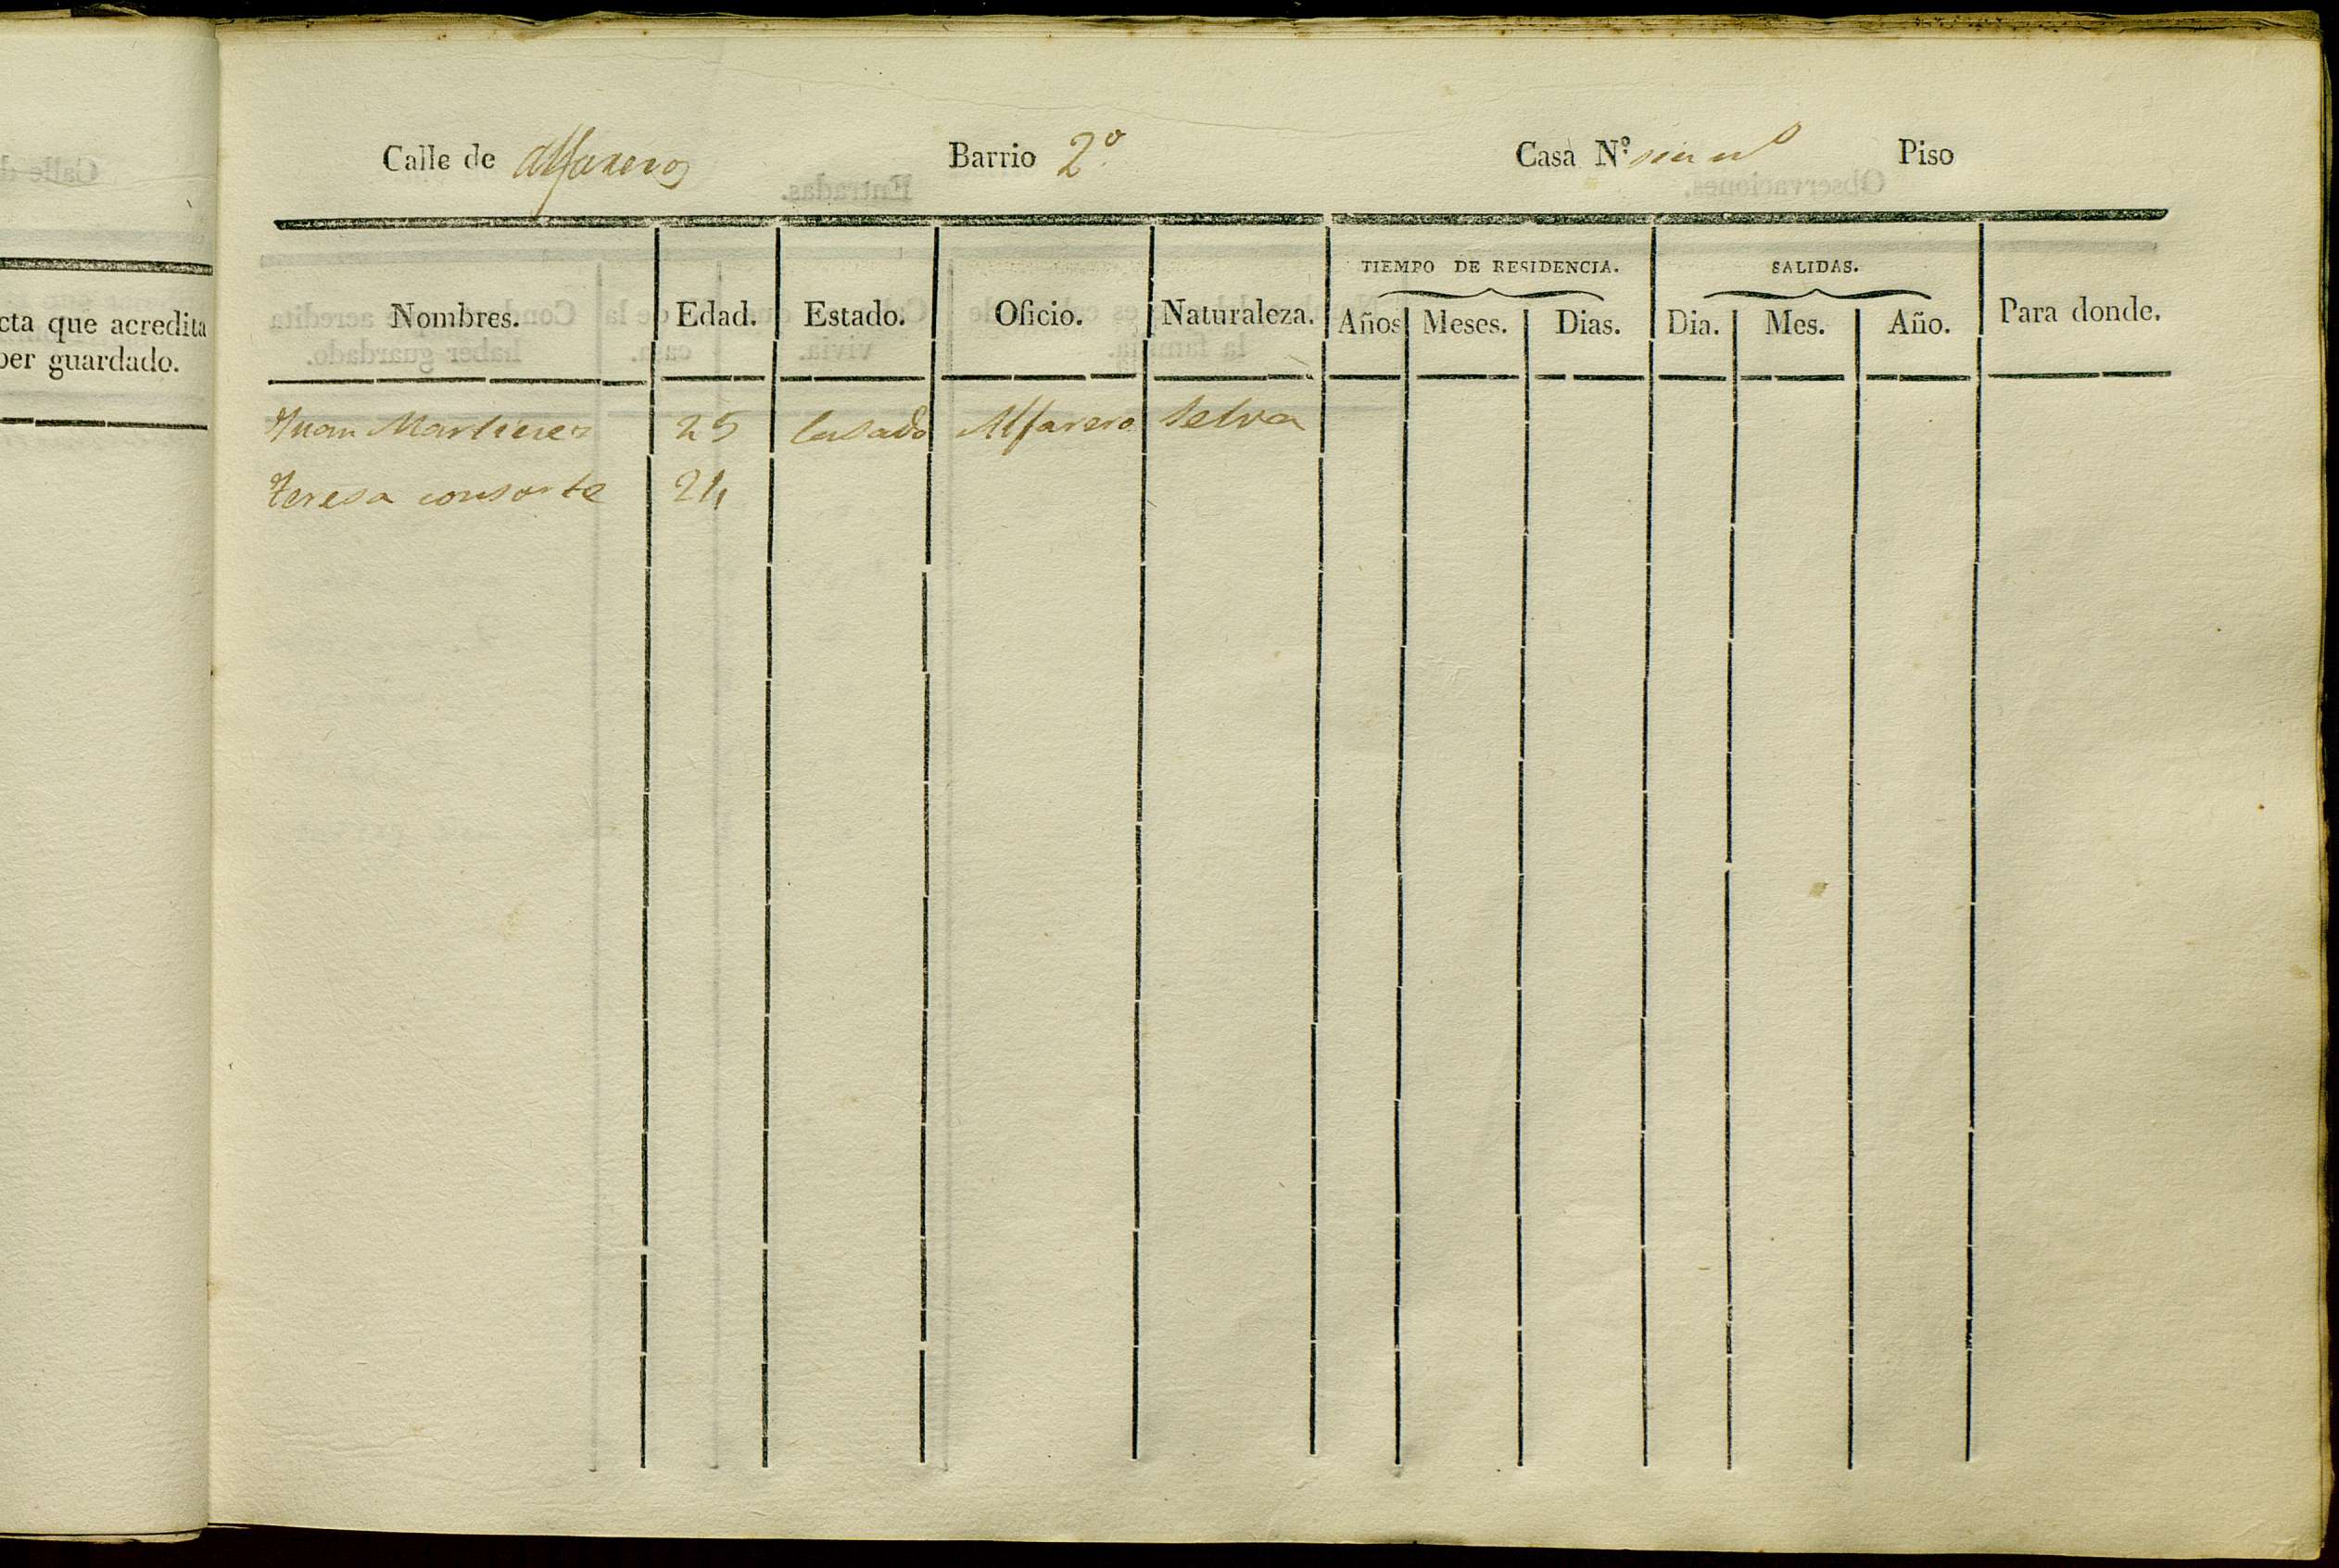 cta que acredita
ber guardado.
Calle de Alfareros Barrio 2º Casa Nº sin nº Piso
TIEMPO DE RESIDENCIA. SALIDAS.
Nombres. Edad. Estado. Oficio. Naturaleza. Años Meses. Dias. Dia. Mes. Año. Para donde.
Juan Martinez 25 Casado Alfarero Selva
Teresa consorte 24